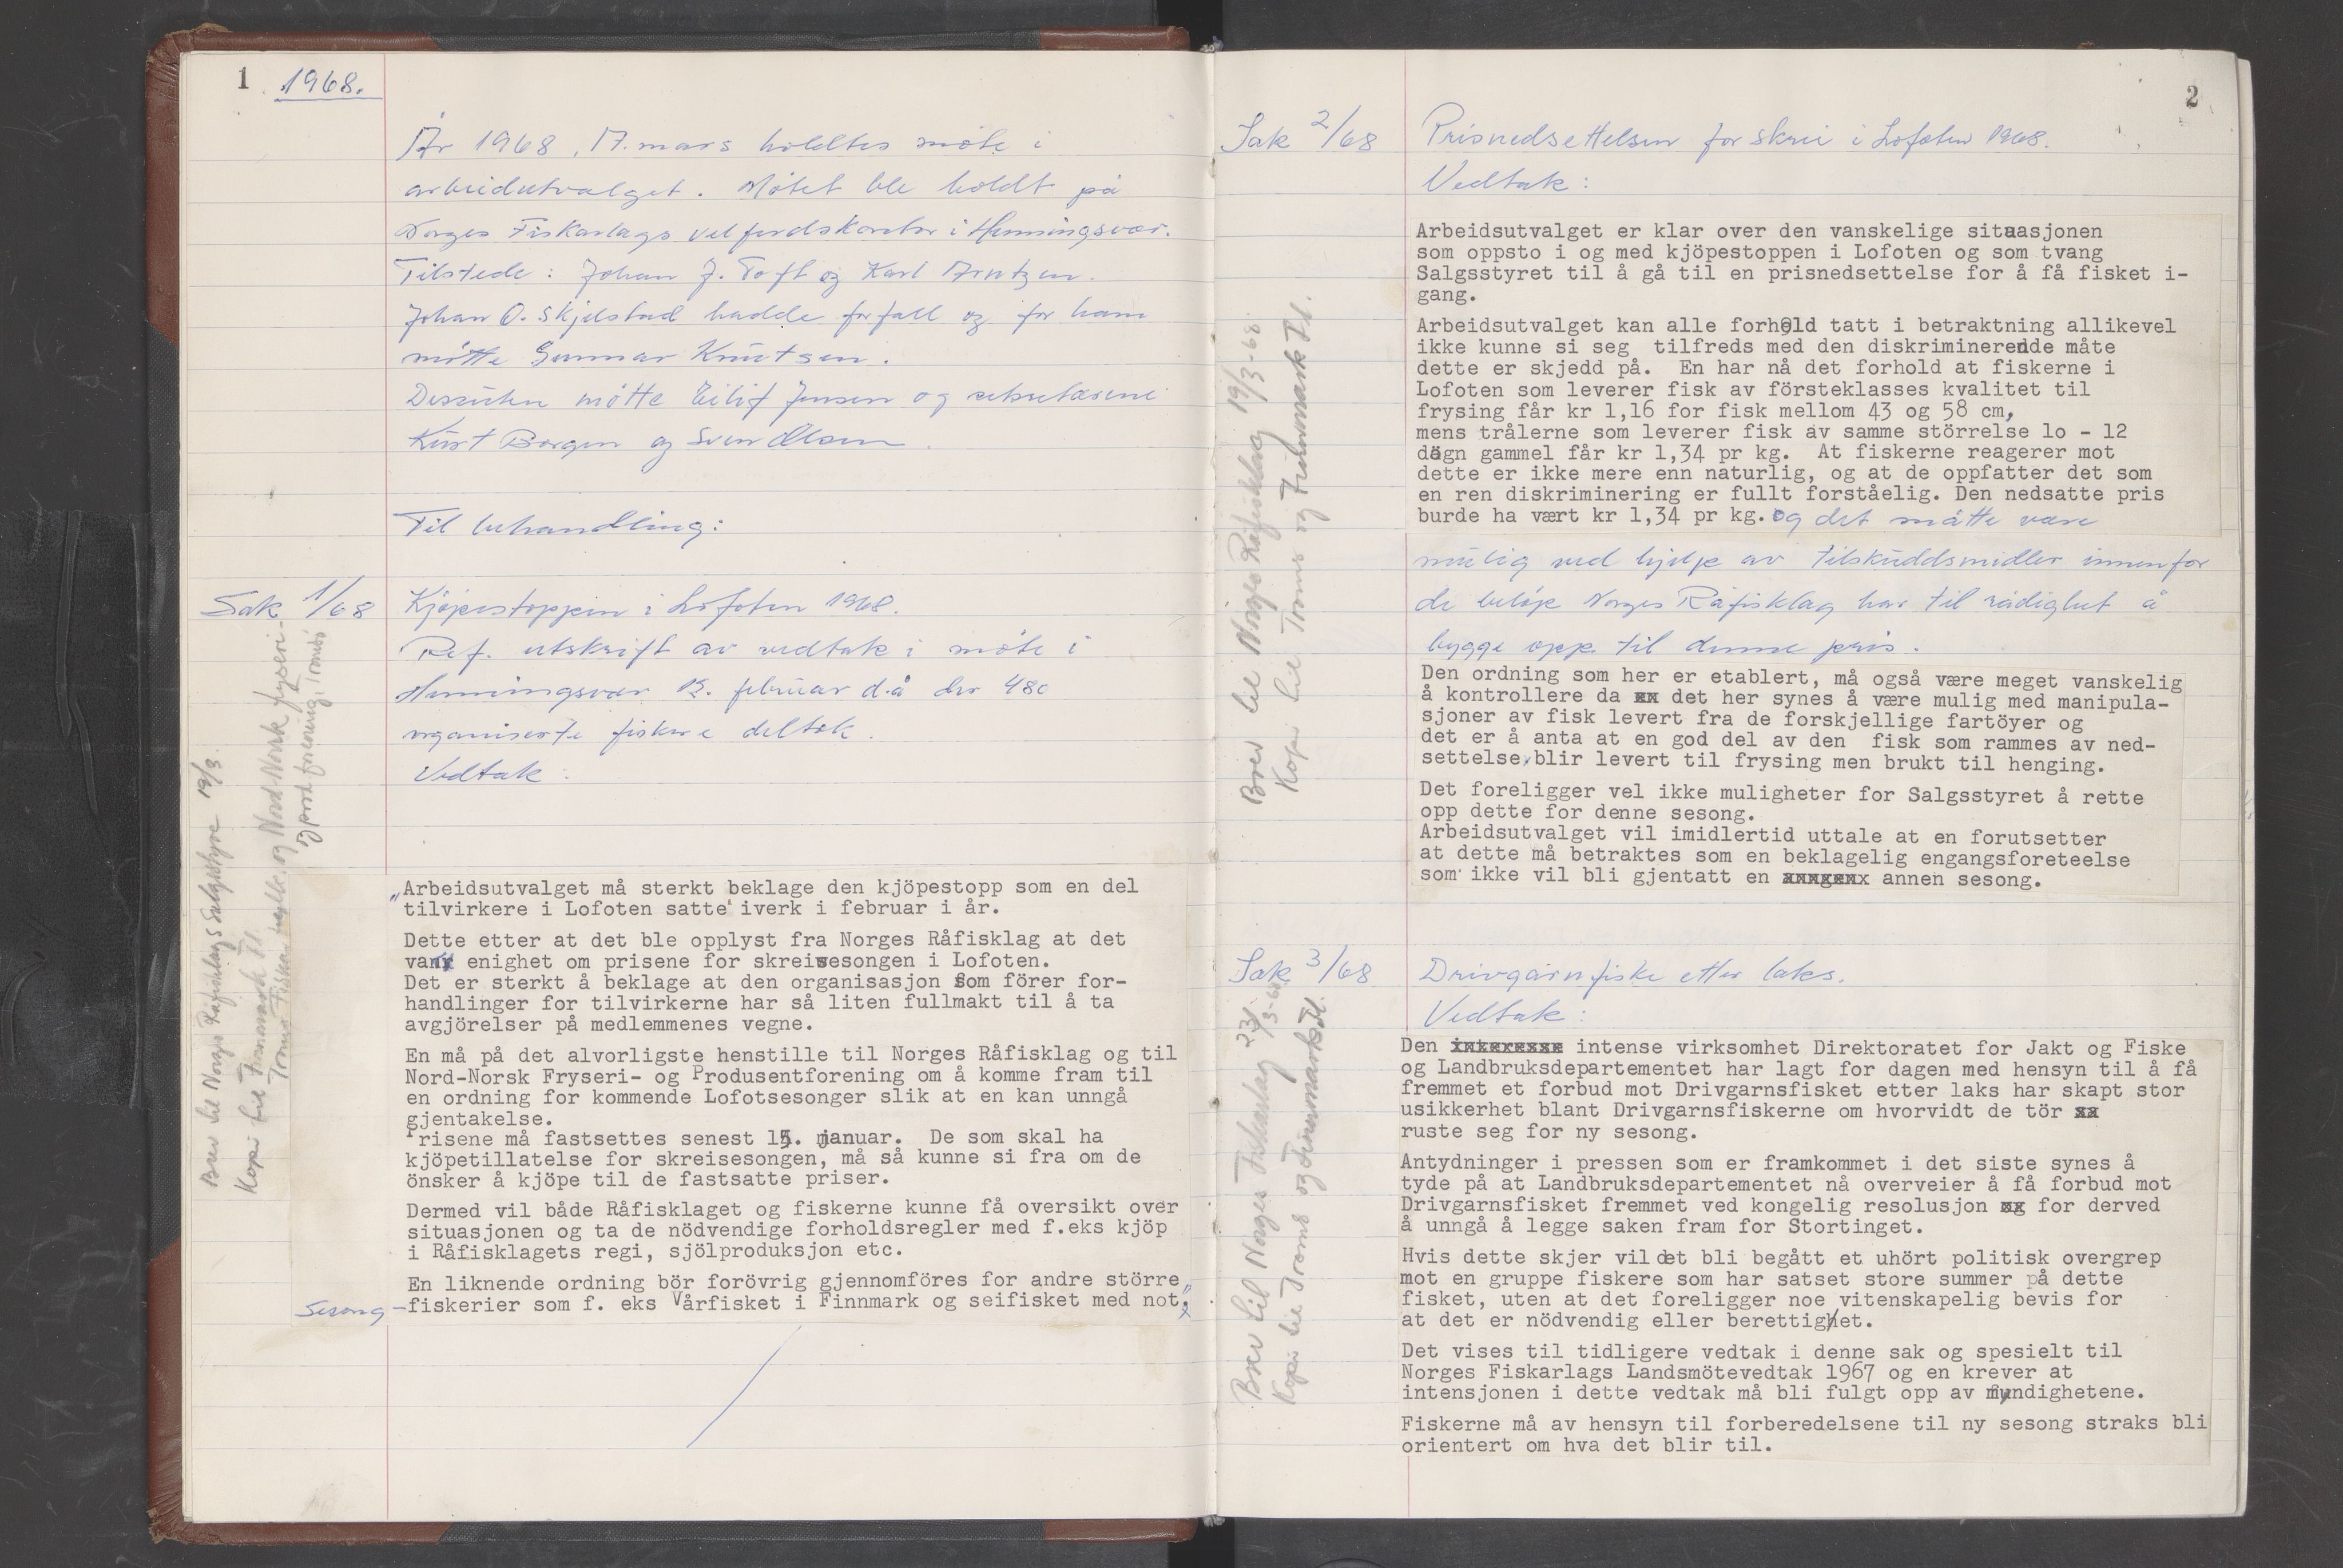 1
1968.
År 1968, 17. mars holdtes møte i
arbeidutvalget. Møtet ble holdt på
Norges Fiskarlags velferdskontor i Henningsvær.
Tilstede: Johan J. Toft og Karl Arntzen.
Johan O. Skjelstad hadde forfall og for ham
møtte Gunnar Knutsen.
Desuten møtte Eilif Jensen og sekretærene
Kurt Borgen og Sven Olsen.
Til behandling:
Sak 1/68 Kjøpestoppen i Lofoten 1968.
Ref. utskrift av vedtak i møte i
Henningsvær 13. februar d.å der 480
organiserte fiskere deltok.
Vedtak:
Brev til Norges Råfisklags Salgsstyre 19/3.
Kopi til Finnmark Fl.
Troms Fiskar og Nord-Norsk fryseri-
og prod.forening, Tromsö
"Arbeidsutvalget må sterkt beklage den kjöpestopp som en del
tilvirkere i Lofoten satte iverk i februar i år.
Dette etter at det ble opplyst fra Norges Råfisklag at det
var enighet om prisene for skreisesongen i Lofoten.
Det er sterkt å beklage at den organisasjon som förer for-
handlinger for tilvirkerne har så liten fullmakt til å ta
avgjörelser på medlemmenes vegne.
En må på det alvorligste henstille til Norges Råfisklag og til
Nord-Norsk Fryseri- og Produsentforening om å komme fram til
en ordning for kommende Lofotsesonger slik at en kan unngå
gjentakelse.
Prisene må fastsettes senest 15. januar. De som skal ha
kjöpetillatelse for skreisesongen, må så kunne si fra om de
önsker å kjöpe til de fastsatte priser.
Dermed vil både Råfisklaget og fiskerne kunne få oversikt over
situasjonen og ta de nödvendige forholdsregler med f.eks kjöp
i Råfisklagets regi, sjölproduksjon etc.
En liknende ordning bör forövrig gjennomföres for andre större
Sesong-fiskerier som f. eks Vårfisket i Finnmark og seifisket med not."
2
Sak 2/68 Prisnedsettelsen for skrei i Lofoten 1968.
Vedtak:
Brev til Norges Råfisklag 19/3-68.
Kopi til Troms og Finnmark Fl.
Arbeidsutvalget er klar over den vanskelige situasjonen
som oppsto i og med kjöpestoppen i Lofoten og som tvang
Salgsstyret til å gå til en prisnedsettelse for å få fisket i-
gang.
Arbeidsutvalget kan alle forhold tatt i betraktning allikevel
ikke kunne si seg tilfreds med den diskriminerende måte
dette er skjedd på. En har nå det forhold at fiskerne i
Lofoten som leverer fisk av försteklasses kvalitet til
frysing får kr 1,16 for fisk mellom 43 og 58 cm,
mens trålerne som leverer fisk av samme störrelse lo - 12
dögn gammel får kr 1,34 pr kg. At fiskerne reagerer mot
dette er ikke mere enn naturlig, og at de oppfatter det som
en ren diskriminering er fullt forståelig. Den nedsatte pris
burde ha vært kr 1,34 pr kg. og det måtte være
mulig ved hjelp av tilskuddsmidler innenfor
de beløp Norges Råfisklag har til rådighet å
bygge opp til denne pris.
Den ordning som her er etablert, må også være meget vanskelig
å kontrollere da xx det her synes å være mulig med manipula-
sjoner av fisk levert fra de forskjellige fartöyer og
det er å anta at en god del av den fisk som rammes av ned-
settelse, blir levert til frysing men brukt til henging.
Det foreligger vel ikke muligheter for Salgsstyret å rette
opp dette for denne sesong.
Arbeidsutvalget vil imidlertid uttale at en forutsetter
at dette må betraktes som en beklagelig engangsforeteelse
som ikke vil bli gjentatt en annen sesong.
Sak 3/68 Drivgarnfiske etter laks.
Vedtak:
Brev til Norges Fiskarlag 23/3-68
Kopi til Troms og Finnmark Fl.
Den intense virksomhet Direktoratet for Jakt og Fiske
og Landbruksdepartementet har lagt for dagen med hensyn til å få
fremmet et forbud mot Drivgarnsfisket etter laks har skapt stor
usikkerhet blant Drivgarnsfiskerne om hvorvidt de tör xx
ruste seg for ny sesong.
Antydninger i pressen som er framkommet i det siste synes å
tyde på at Landbruksdepartementet nå overveier å få forbud mot
Drivgarnsfisket fremmet ved kongelig resolusjon xx for derved
å unngå å legge saken fram for Stortinget.
Hvis dette skjer vil det bli begått et uhört politisk overgrep
mot en gruppe fiskere som har satset store summer på dette
fisket, uten at det foreligger noe vitenskapelig bevis for
at det er nödvendig eller berettiget.
Det vises til tidligere vedtak i denne sak og spesielt til
Norges Fiskarlags Landsmötevedtak 1967 og en krever at
intensjonen i dette vedtak må bli fulgt opp av myndighetene.
Fiskerne må av hensyn til forberedelsene til ny sesong straks bli
orientert om hva det blir til.